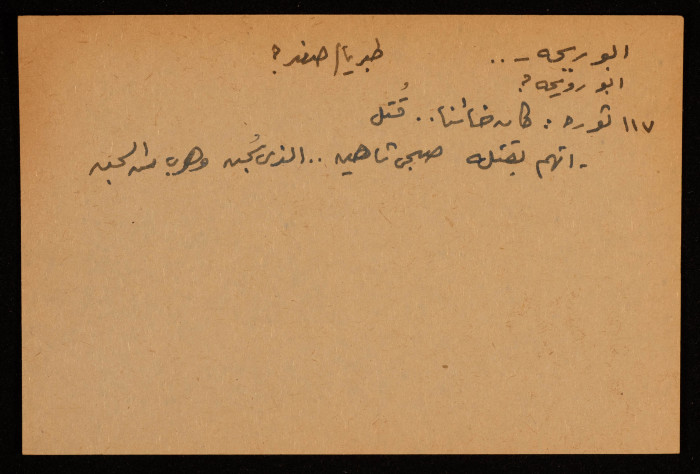 ابو ريحه - .. طبريا / صفد؟
ابو رويحه؟
١١٧ ثورة : كان خائنا .. قُتل
- اتهم بقتله صبحي شاهين .. الذي سُجن وهرب من السجن